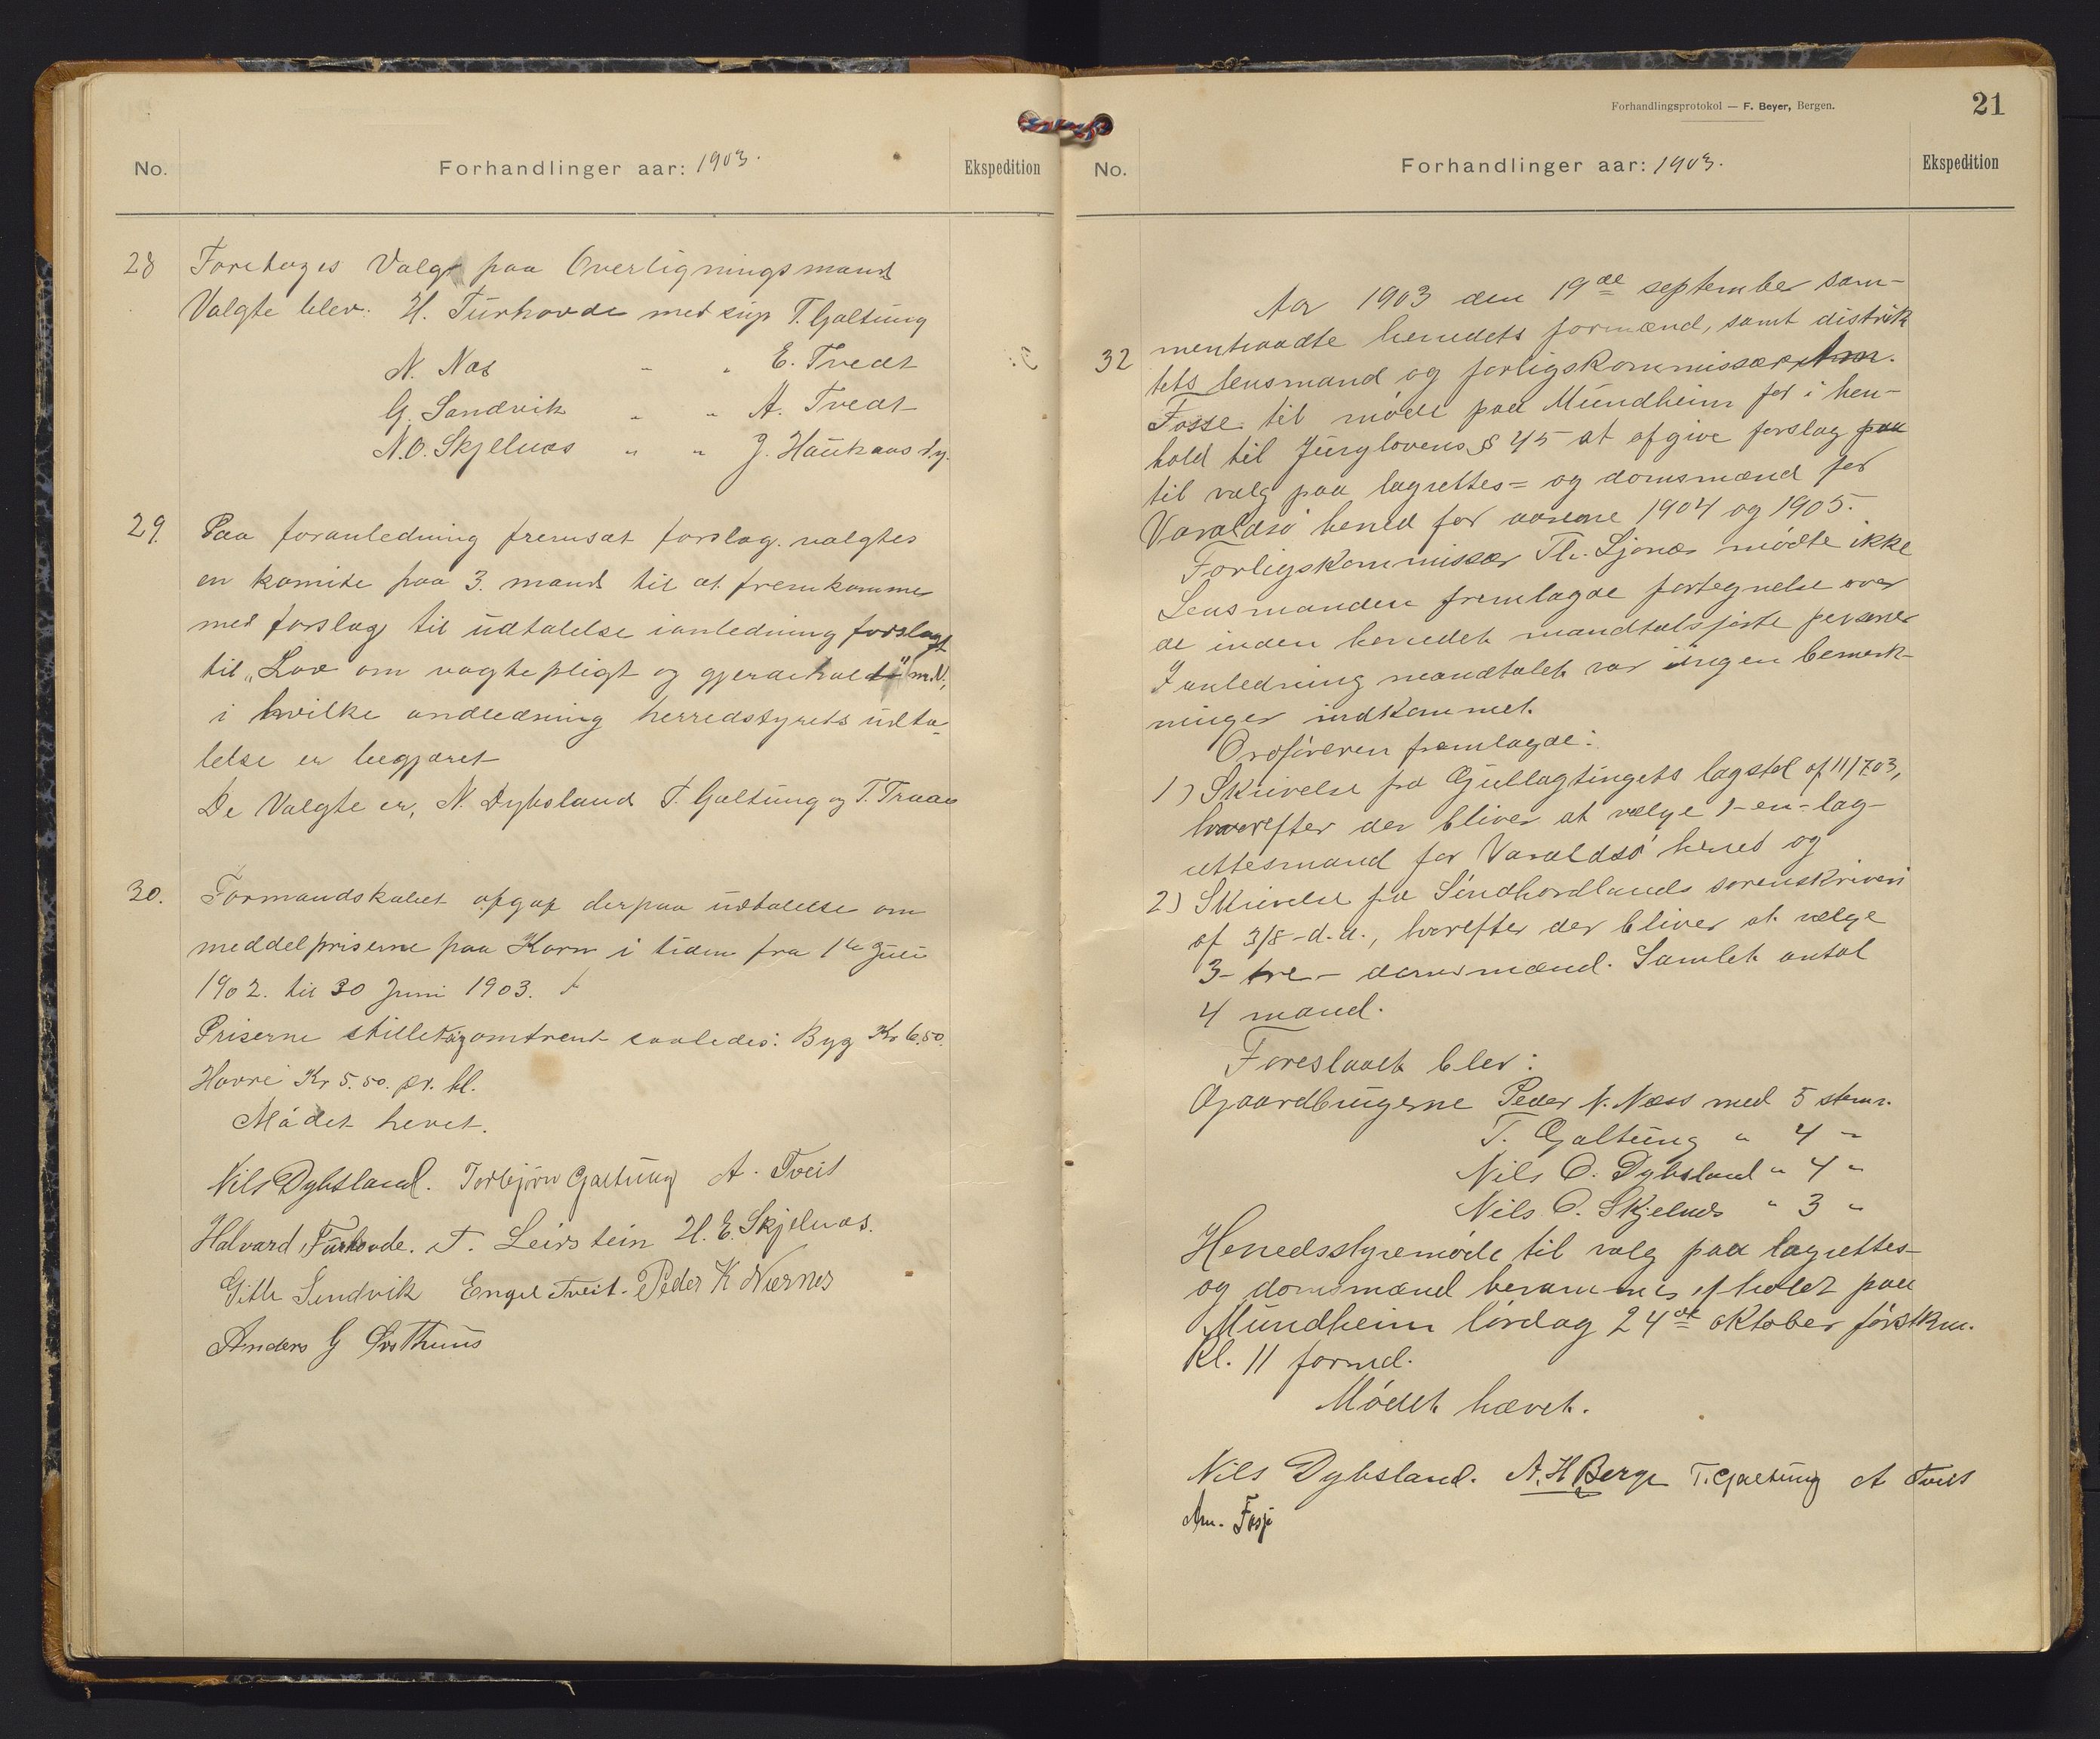 No.
Forhandlinger aar: 1903.
Ekspedition
28 Foretages Valg paa Overligningsmand
Valgte blev. H. Turhovde med sup T. Galtung
N. Næs " " E. Tvedt
G. Sandvik " " A. Tvedt
N.O. Skjelnæs " " J. Haukaas
29. Paa foranledning fremsat forslag valgtes
en komite paa 3. mand til at fremkomme
med forslag til udtalelse ianledning forslaget
til „Lov om vogtepligt og gjerdehold" m.V,
i hvilke andledning herredstyrets udta-
lelse er begjæret
De Valgte er, N. Dybsland T. Galtung og T. Traaes
30. Formandskabet afgav derpaa udtalelse om
meddelpriserne paa Korn i tiden fra 1te Juli
1902. til 30 Juni 1903.
Priserne stillet sig omtrent saaledes: Byg Kr 6.50.
Havre Kr 5.50. pr. hl.
Mødet hevet.
Nils Dybsland. Torbjørn Galtung A. Tveit
Halvard Turhovde. T. Leirstein H. E. Skjelnæs.
Gitle Sendvik Engel Tveit. Peder K Nernes
Anders G Østhuus
Forhandlingsprotokol — F. Beyer, Bergen.
21
No.
Forhandlinger aar: 1903.
Ekspedition
Aar 1903 den 19de september sam-
32 mentraadte herredets formænd, samt distrik
tets lensmand og forligskommissær Am.
Fosse til møde paa Mundheim for i hen-
hold til Jurylovens § 45 at afgive forslag paa
til valg paa lagrettes= og domsmænd for
Varaldsø herred for aarene 1904 og 1905.
Forligskommissær Th. Ljonæs mødte ikke
Lensmanden fremlagde fortegnelse over
de inden herredet mandtalsførte personer
I anledning mandtalet var ingen bemærk-
ninger indkommet.
Ordføreren fremlagde:
1) Skrivelse fra Gulatingets lagstol af 11/7.03,
hvorefter der bliver at vælge 1-en-lag-
rettesmand for Varaldsø herred og
2) Skrivelse fra Søndhordlands sorenskriveri
af 3/8-d.a., hvorefter der bliver at vælge
3-tre- domsmænd. Samlet antal
4 mand.
Foreslaaet blev:
Gaardbrugerne Peder N. Næss med 5 stem.
T. Galtung " 4 "
Nils O. Dybsland " 4 "
Nils O. Skjelnæs " 3 "
Herredsstyremøde til valg paa lagrettes-
og domsmænd berammes afholdt paa
Mundheim lørdag 24de oktober førstkm.
Kl. 11 formd.
Mødet hævet.
Nils Dybsland. A. H Berge T. Galtung A Tveit
Am. Fosse